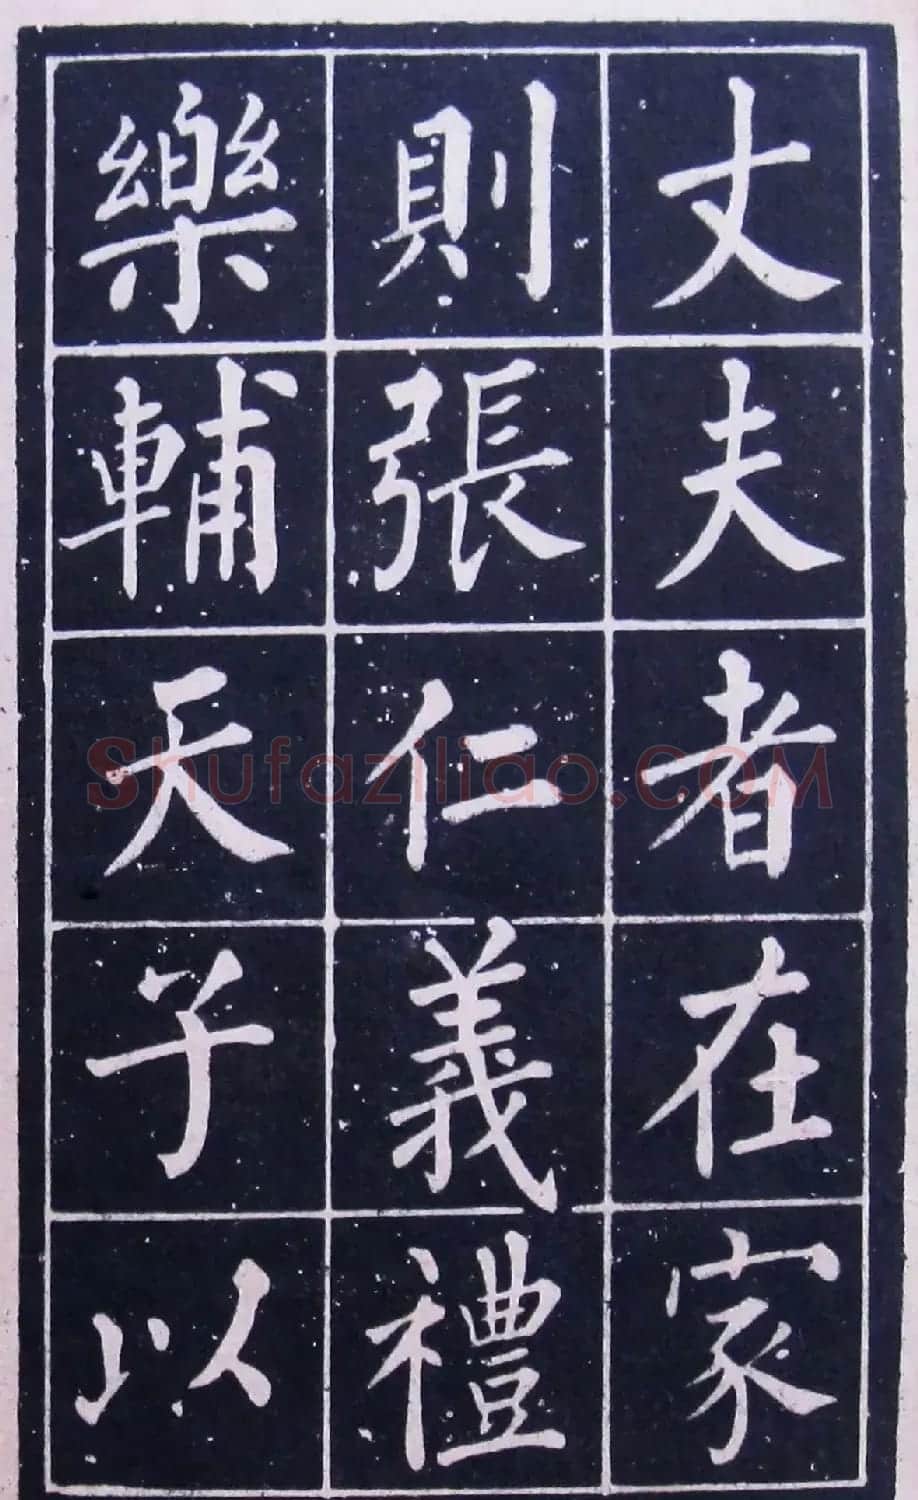 丈夫者在家
則張仁義禮
樂輔天子以
Shufaziliao.COM